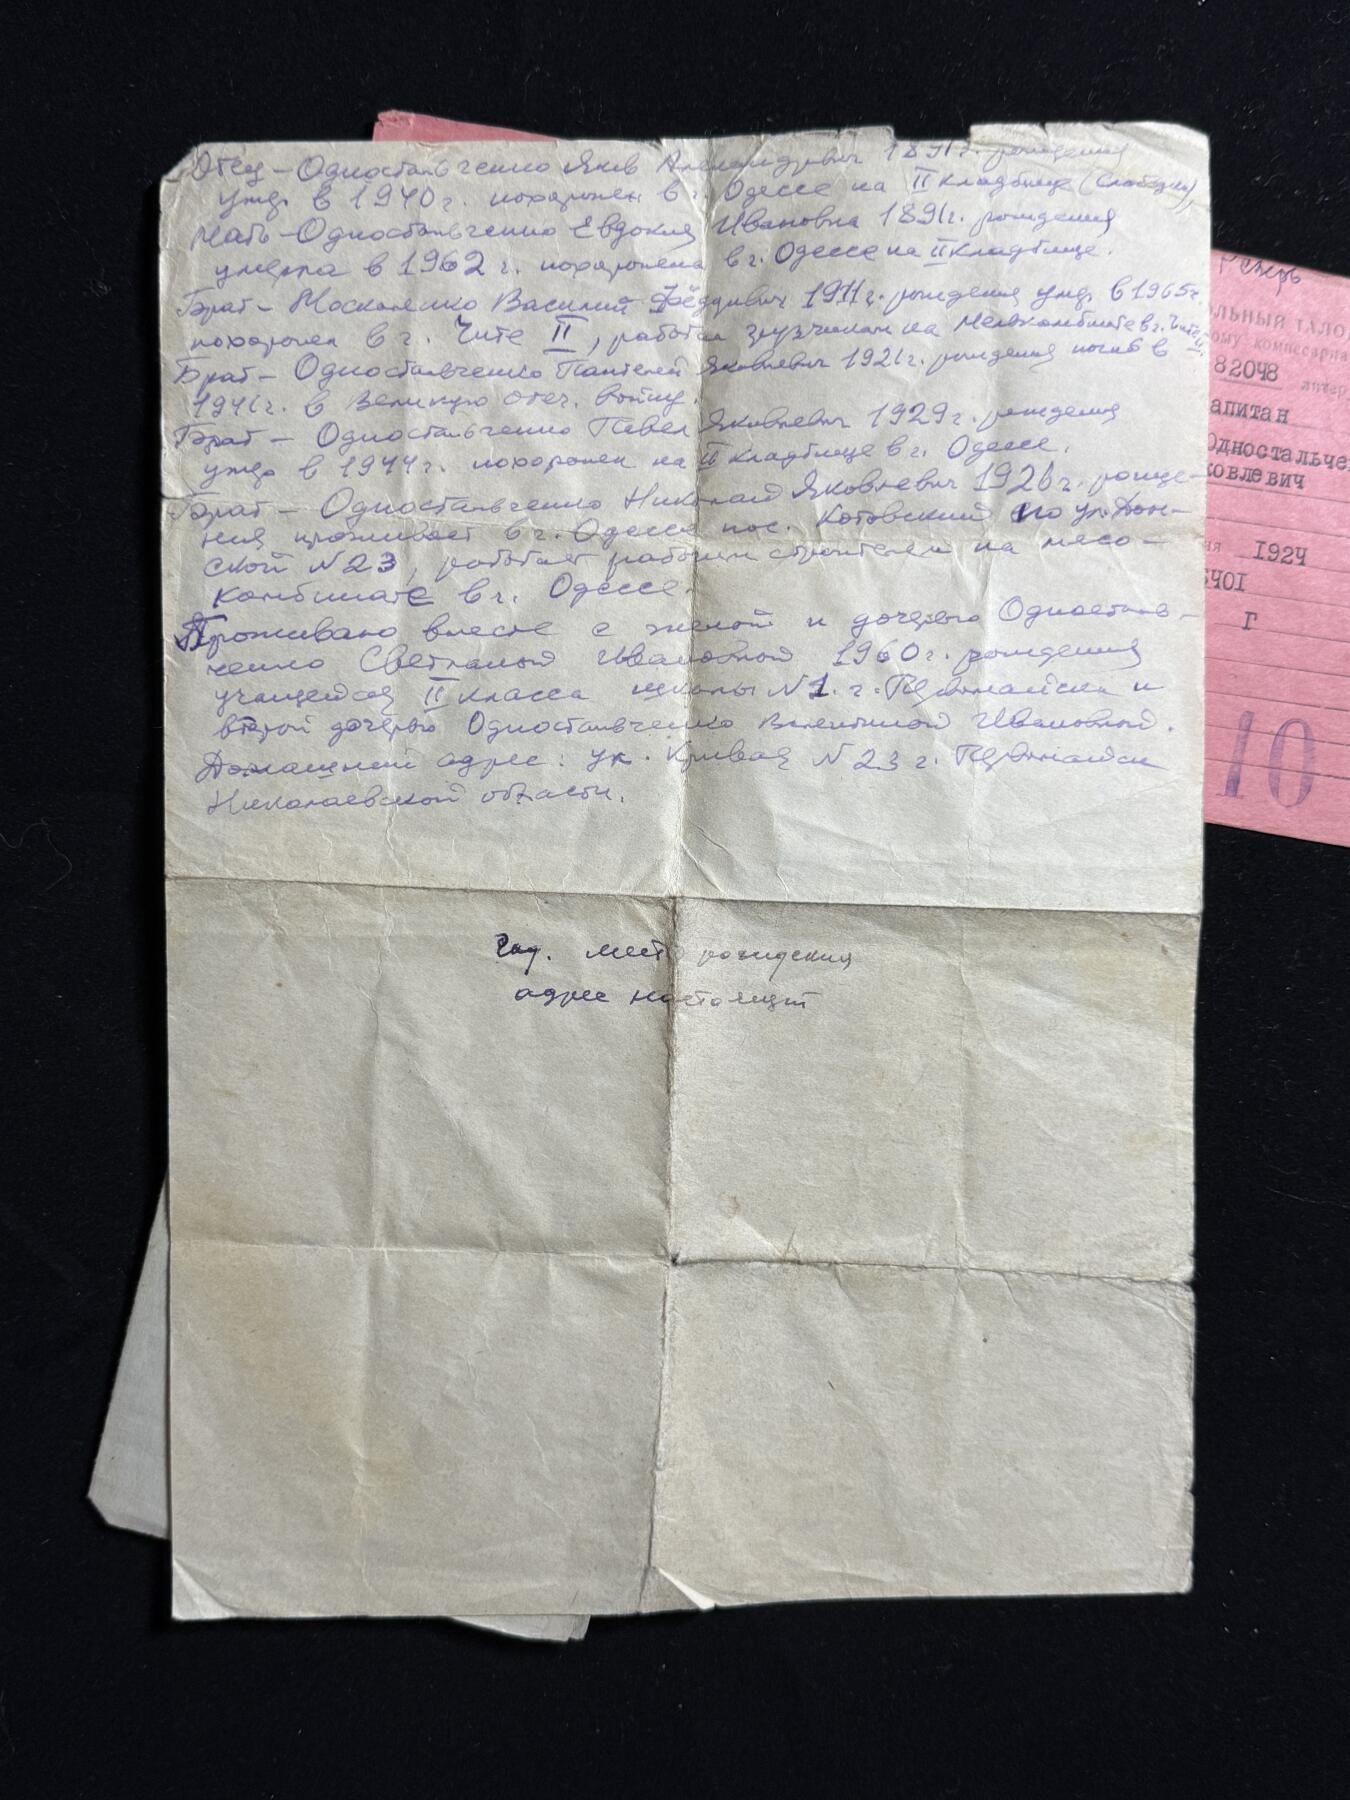 Отец – Одностальченко Яков Александрович 1891г. рождения
умер в 1940г. похоронен в г. Одессе на II кладбище (Слободка),
Мать – Одностальченко Евдокия Ивановна 1891г. рождения
умерла в 1962 г. похоронена в г. Одессе на II кладбище.
Брат – Москаленко Василий Фёдорович 1911г. рождения умер в 1965г.
похоронен в г. Чите II, работал грузчиком на Мелькомбинате в г. Чите II.
Брат – Одностальченко Пантелей Яковлевич 1921г. рождения погиб в
1941г. в Великую отеч. войну.
Брат – Одностальченко Павел Яковлевич 1929г. рождения
умер в 1944г. похоронен на II кладбище в г. Одессе.
Брат – Одностальченко Николай Яковлевич 1926г. рожде-
ния проживает в г. Одессе пос. Котовский по ул. Дон-
ской N23, работает рабочим строителем на мясо-
комбинате в г. Одессе.
Проживаю вместе с женой и дочерью Односталь-
ченко Светланой Ивановной 1960г. рождения
учащейся II класса школы N1. г. Первомайска и
второй дочерью Одностальченко Валентиной Ивановной.
Домашний адрес: ул. Кривая N23 г. Первомайск
Николаевской области.
Год. мест рождения
адрес настоящ
ЛЬНЫЙ ТАЛО
ому комиссариа
82048 литер
апитан
Одностальче
ковлевич
ия 1924
5401
Г
10